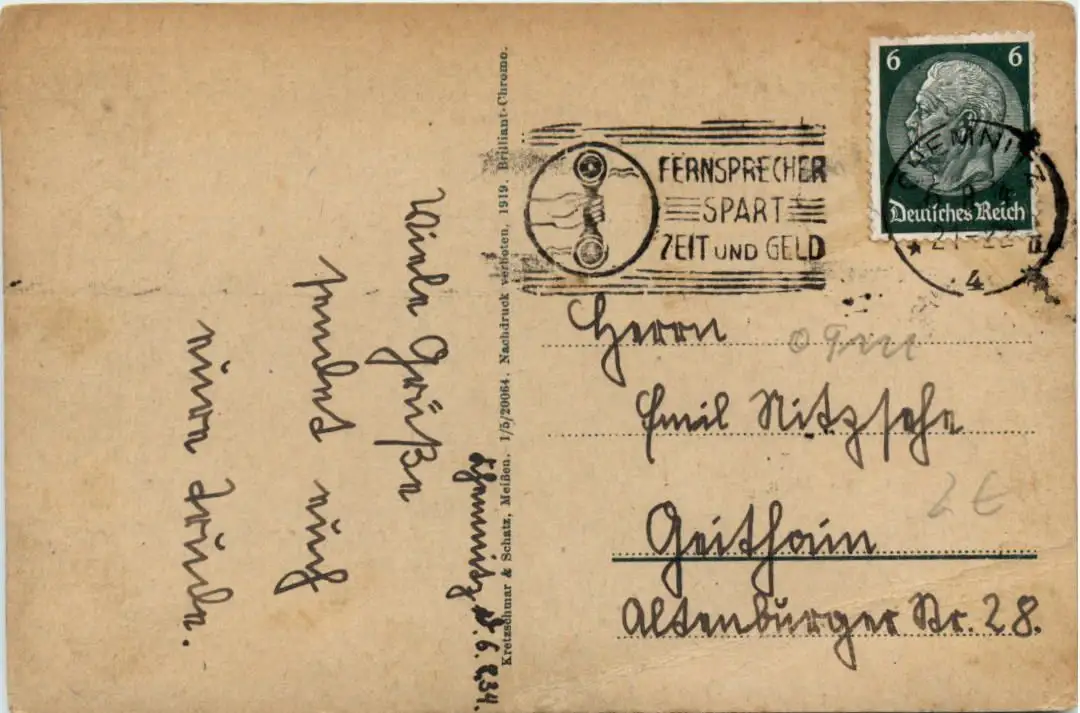 Kretzschmar & Schatz, Meißen. 1/5/20064. Nachdruck verboten, 1919. Brilliant-Chromo.
Chemnitz, d. 6.8.34.
Viele Grüße
sendet euch
eure Trude.
6 6
Deutsches Reich
FERNSPRECHER
SPART
ZEIT UND GELD
CHEMNITZ
6.8.34
21-22
4
Herrn
Emil Nitzsche
Geithain
Altenburger Str. 28.
2 €